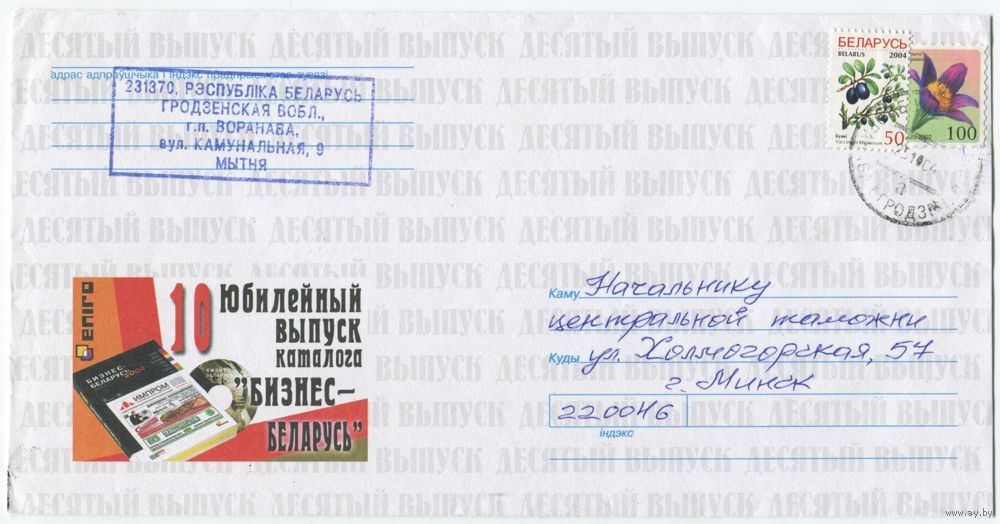 ДЕСЯТЫЙ ВЫПУСК ДЕСЯТЫЙ ВЫПУСК ДЕСЯТЫЙ ВЫПУСК
адрас адпраўшчыка і індэкс прадпрыемства сувязі
231370, РЭСПУБЛІКА БЕЛАРУСЬ
ГРОДЗЕНСКАЯ ВОБЛ.,
г.п. ВОРАНАВА,
вул. КАМУНАЛЬНАЯ, 9
МЫТНЯ
БЕЛАРУСЬ
BELARUS 2004
50
100
ГРОДЗ
enigo
10 Юбилейный
выпуск
каталога
"БИЗНЕС–
БЕЛАРУСЬ"
БИЗНЕС-
БЕЛАРУСЬ 2004
ИМПРОМ
Каму Начальнику
центральной таможни
Куды ул. Холмогорская, 57
г. Минск
220046
індэкс
www.ay.by